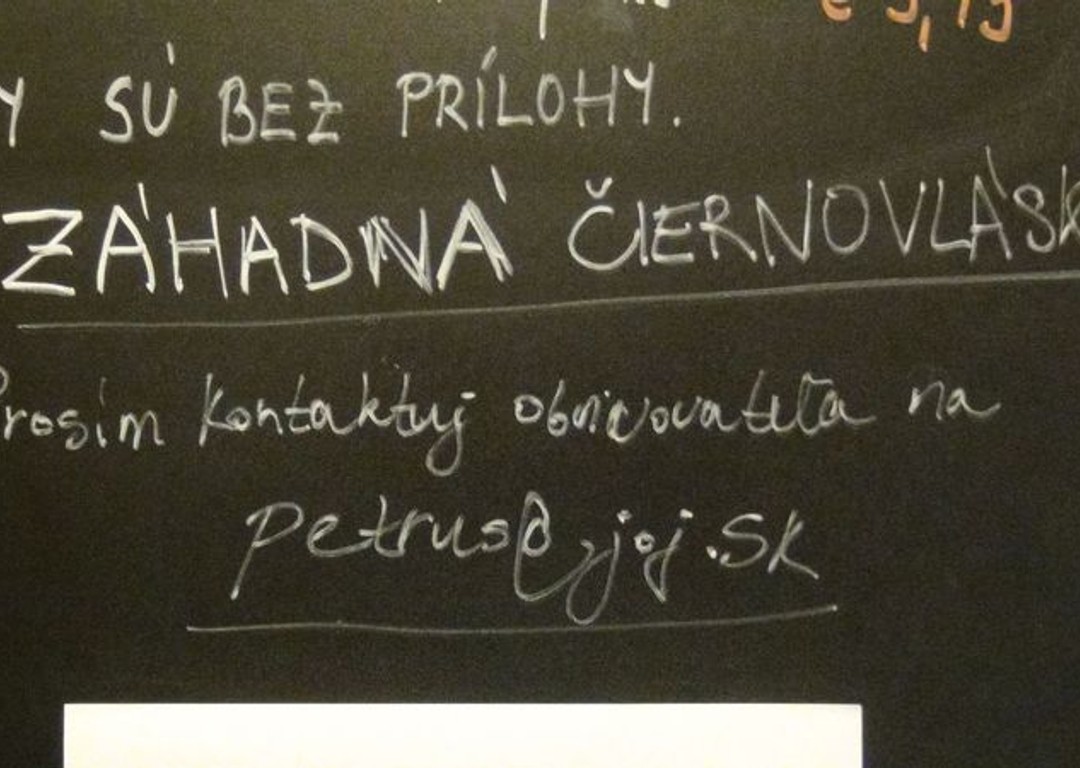 Y SÚ BEZ PRÍLOHY.
ZÁHADNÁ ČIERNOVLÁSK
Prosím kontaktuj obdivovateľa na
petrus@joj.sk